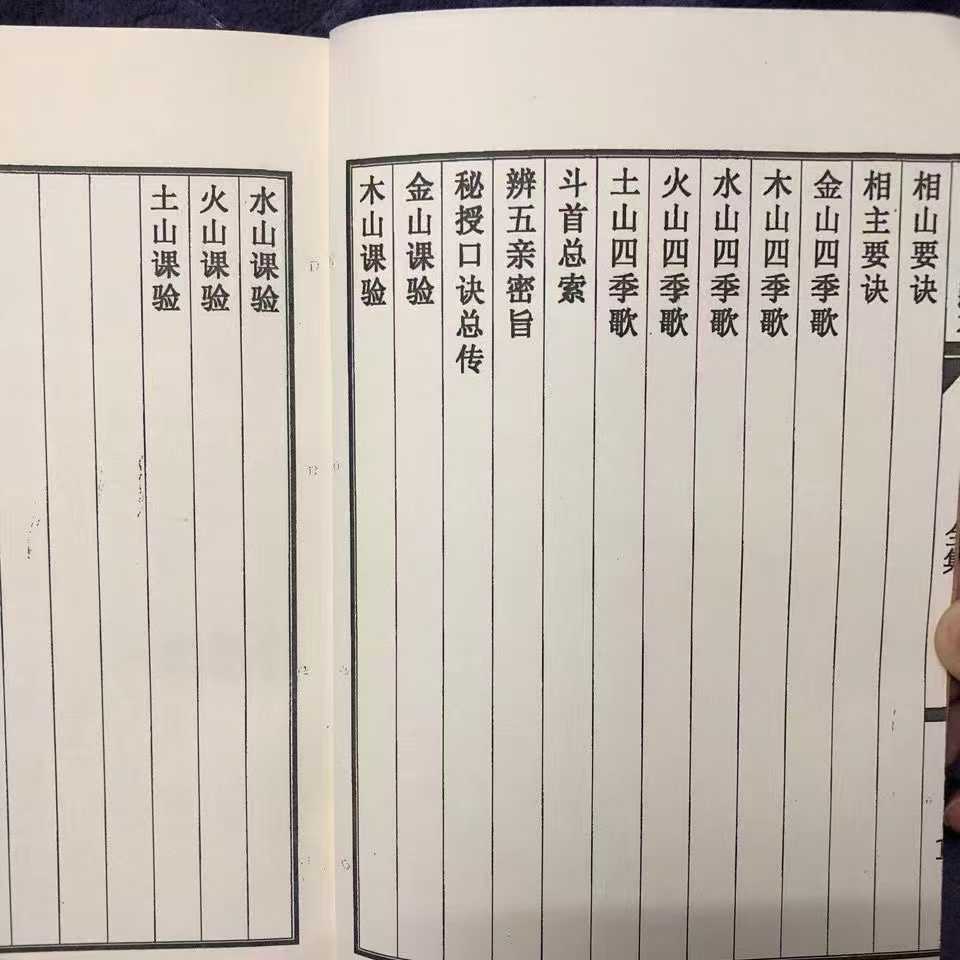 相山要诀
相主要诀
金山四季歌
木山四季歌
水山四季歌
火山四季歌
土山四季歌
斗首总索
辨五亲密旨
秘授口诀总传
金山课验
木山课验
水山课验
火山课验
土山课验
全集